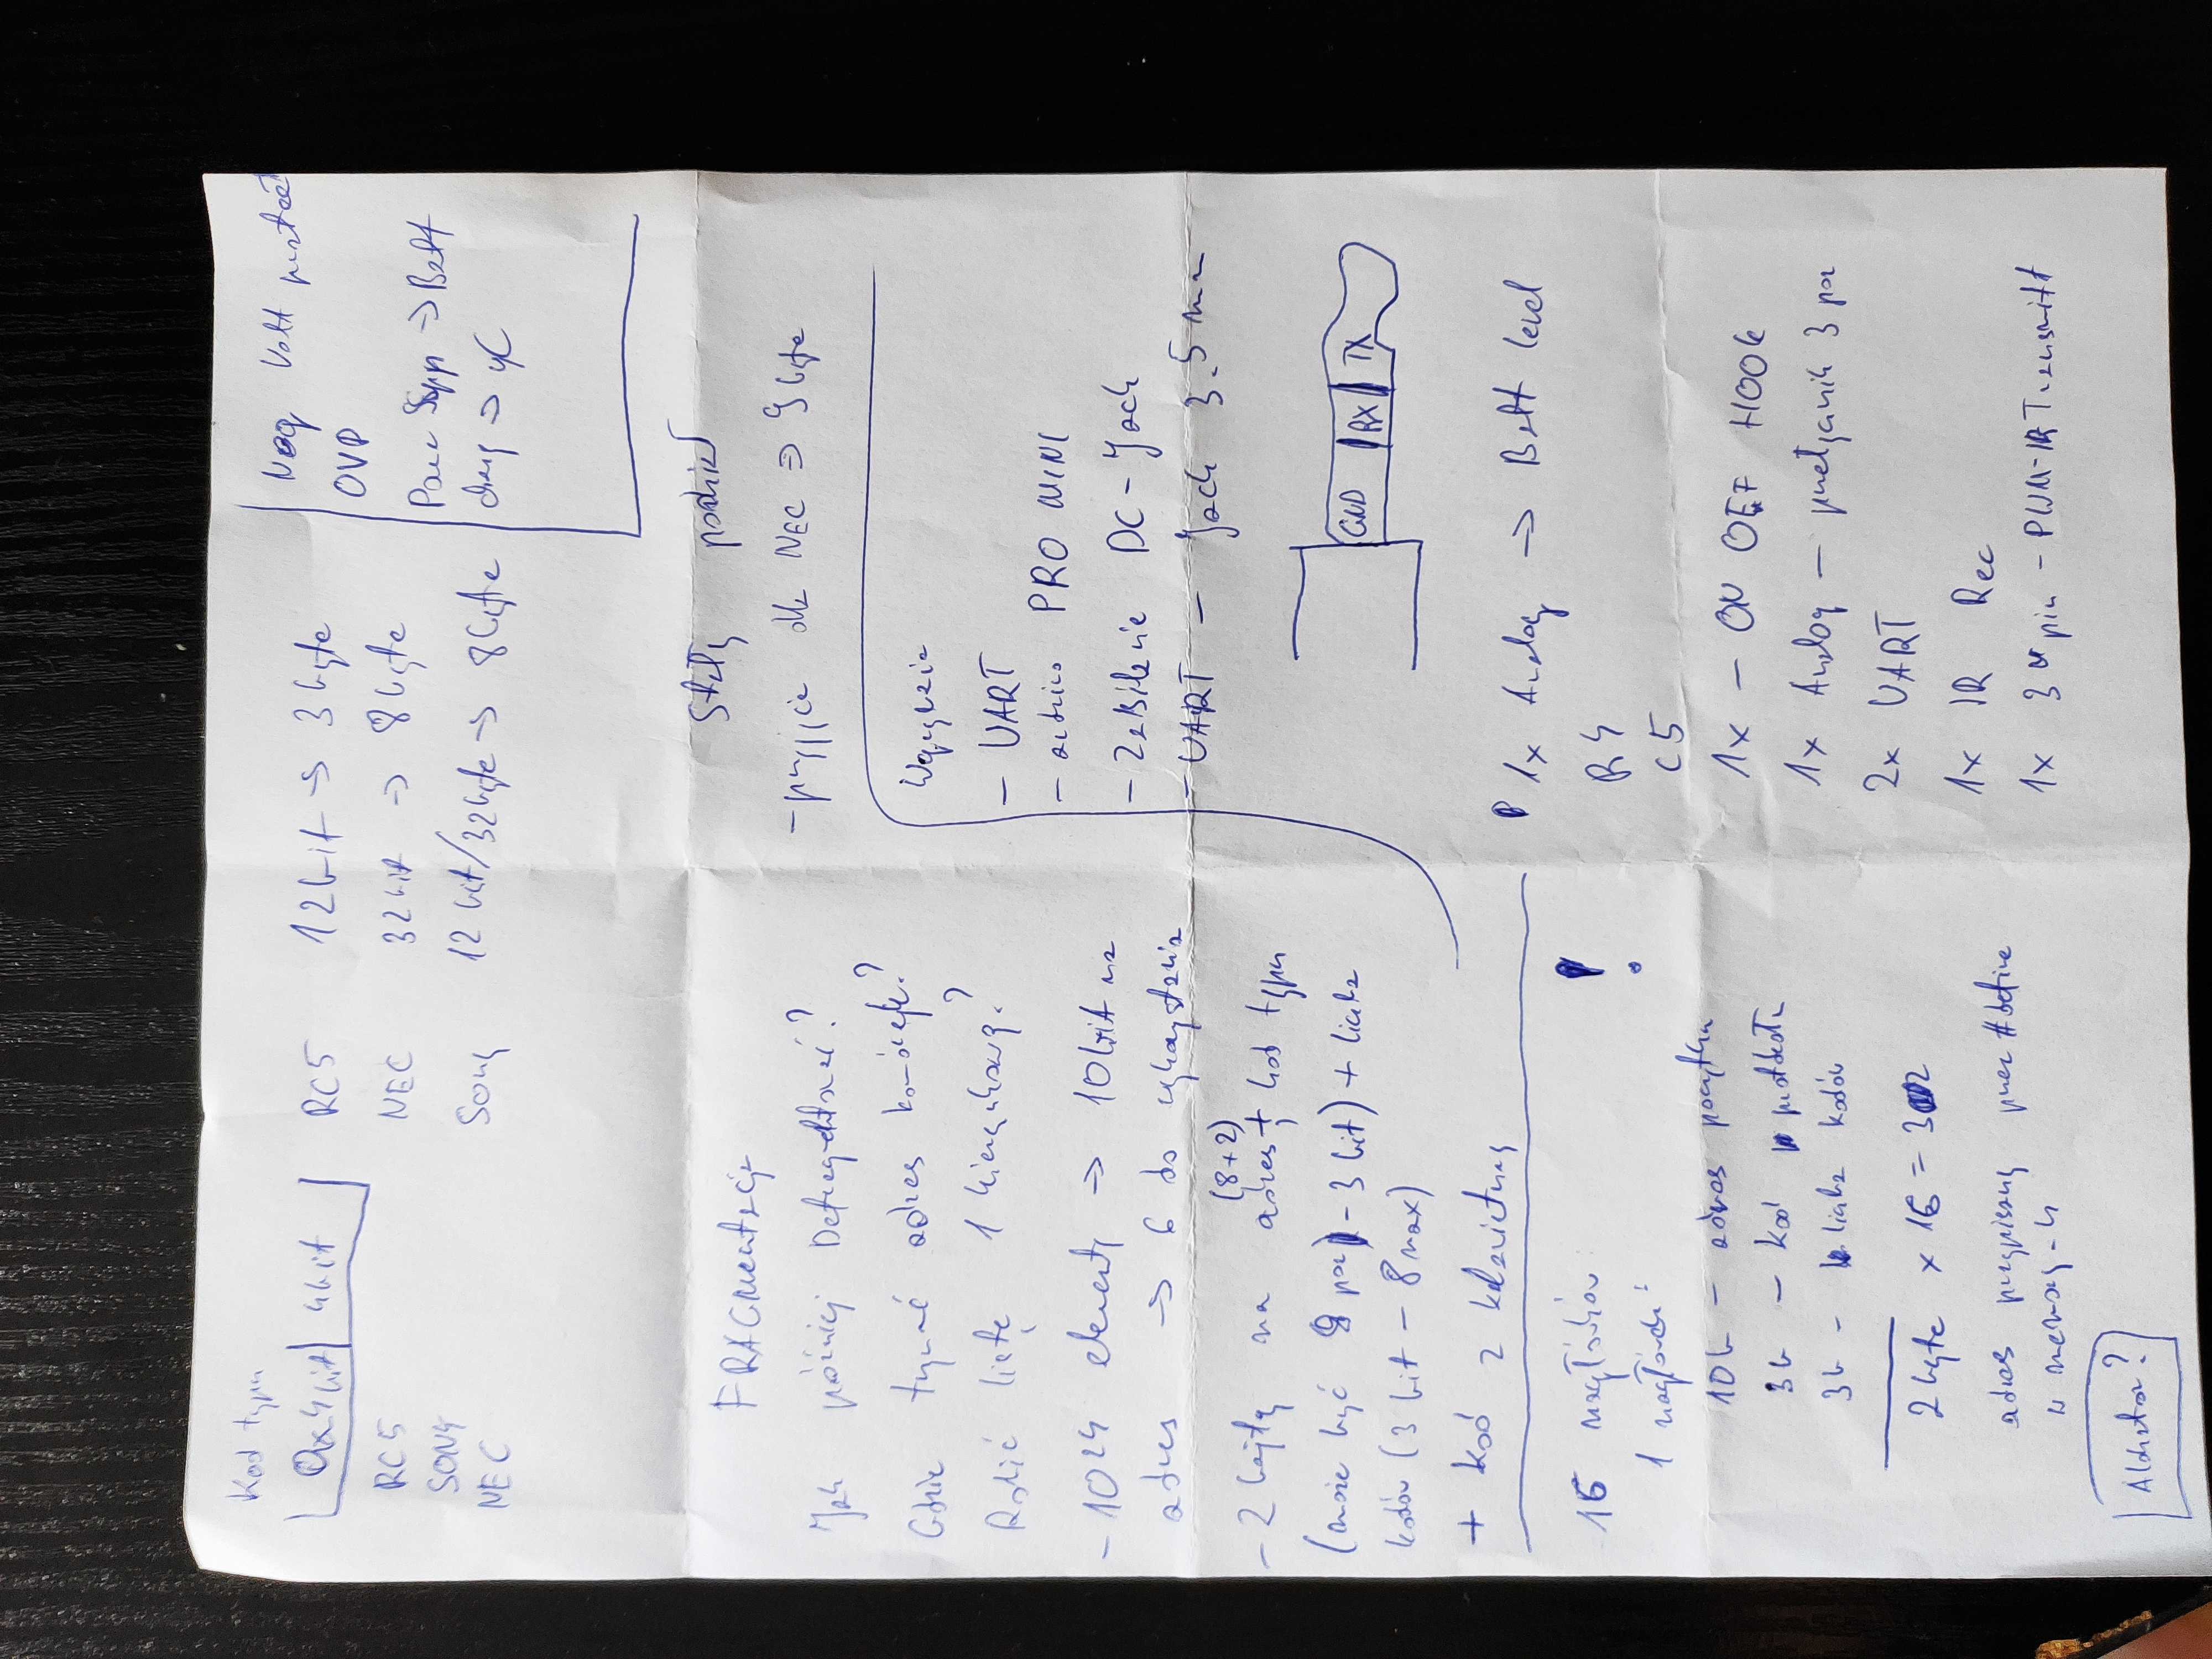 Kod typu
0x4bit 4bit
RC5
SONY
NEC
RC5 12bit → 3 byte
NEC 32bit → 8 byte
Sony 12 bit/32byte → 8 byte
Volt
OVP
Supp → Batt
→ uC
FRAGmentacja
Jak później Defragmentować?
Gdzie trzymać adres komórek?
Robić listę 1 kierunkową?
- 1024 elementy → 10bit na
adres → 6 do wykorzystania
(8+2)
- 2 bajty na adres + kod typu
(może być 8 poz - 3 bit) + liczba
kodów (3 bit - 8 max)
+ Kod z klawiatury
16 nagłówków !
1 nagłówek:
10b - adres początku
3b - kod protokołu
3b - liczba kodów
2 byte x 16 = 32
adres przypisany przez #define
w memory.h
Stały podział
- przyjęcie dla NEC ⇒ 9 byte
- UART
- PRO MINI
- Zasilanie DC-Jack
- UART - Jack 3.5 mm
GND RX TX
1x Analog → Batt level
R4
C5
1x - ON OFF HOOK
1x Analog - przełącznik 3 poz
2x UART
1x IR Rec
1x 3 pin - PWM-IR Transmitt